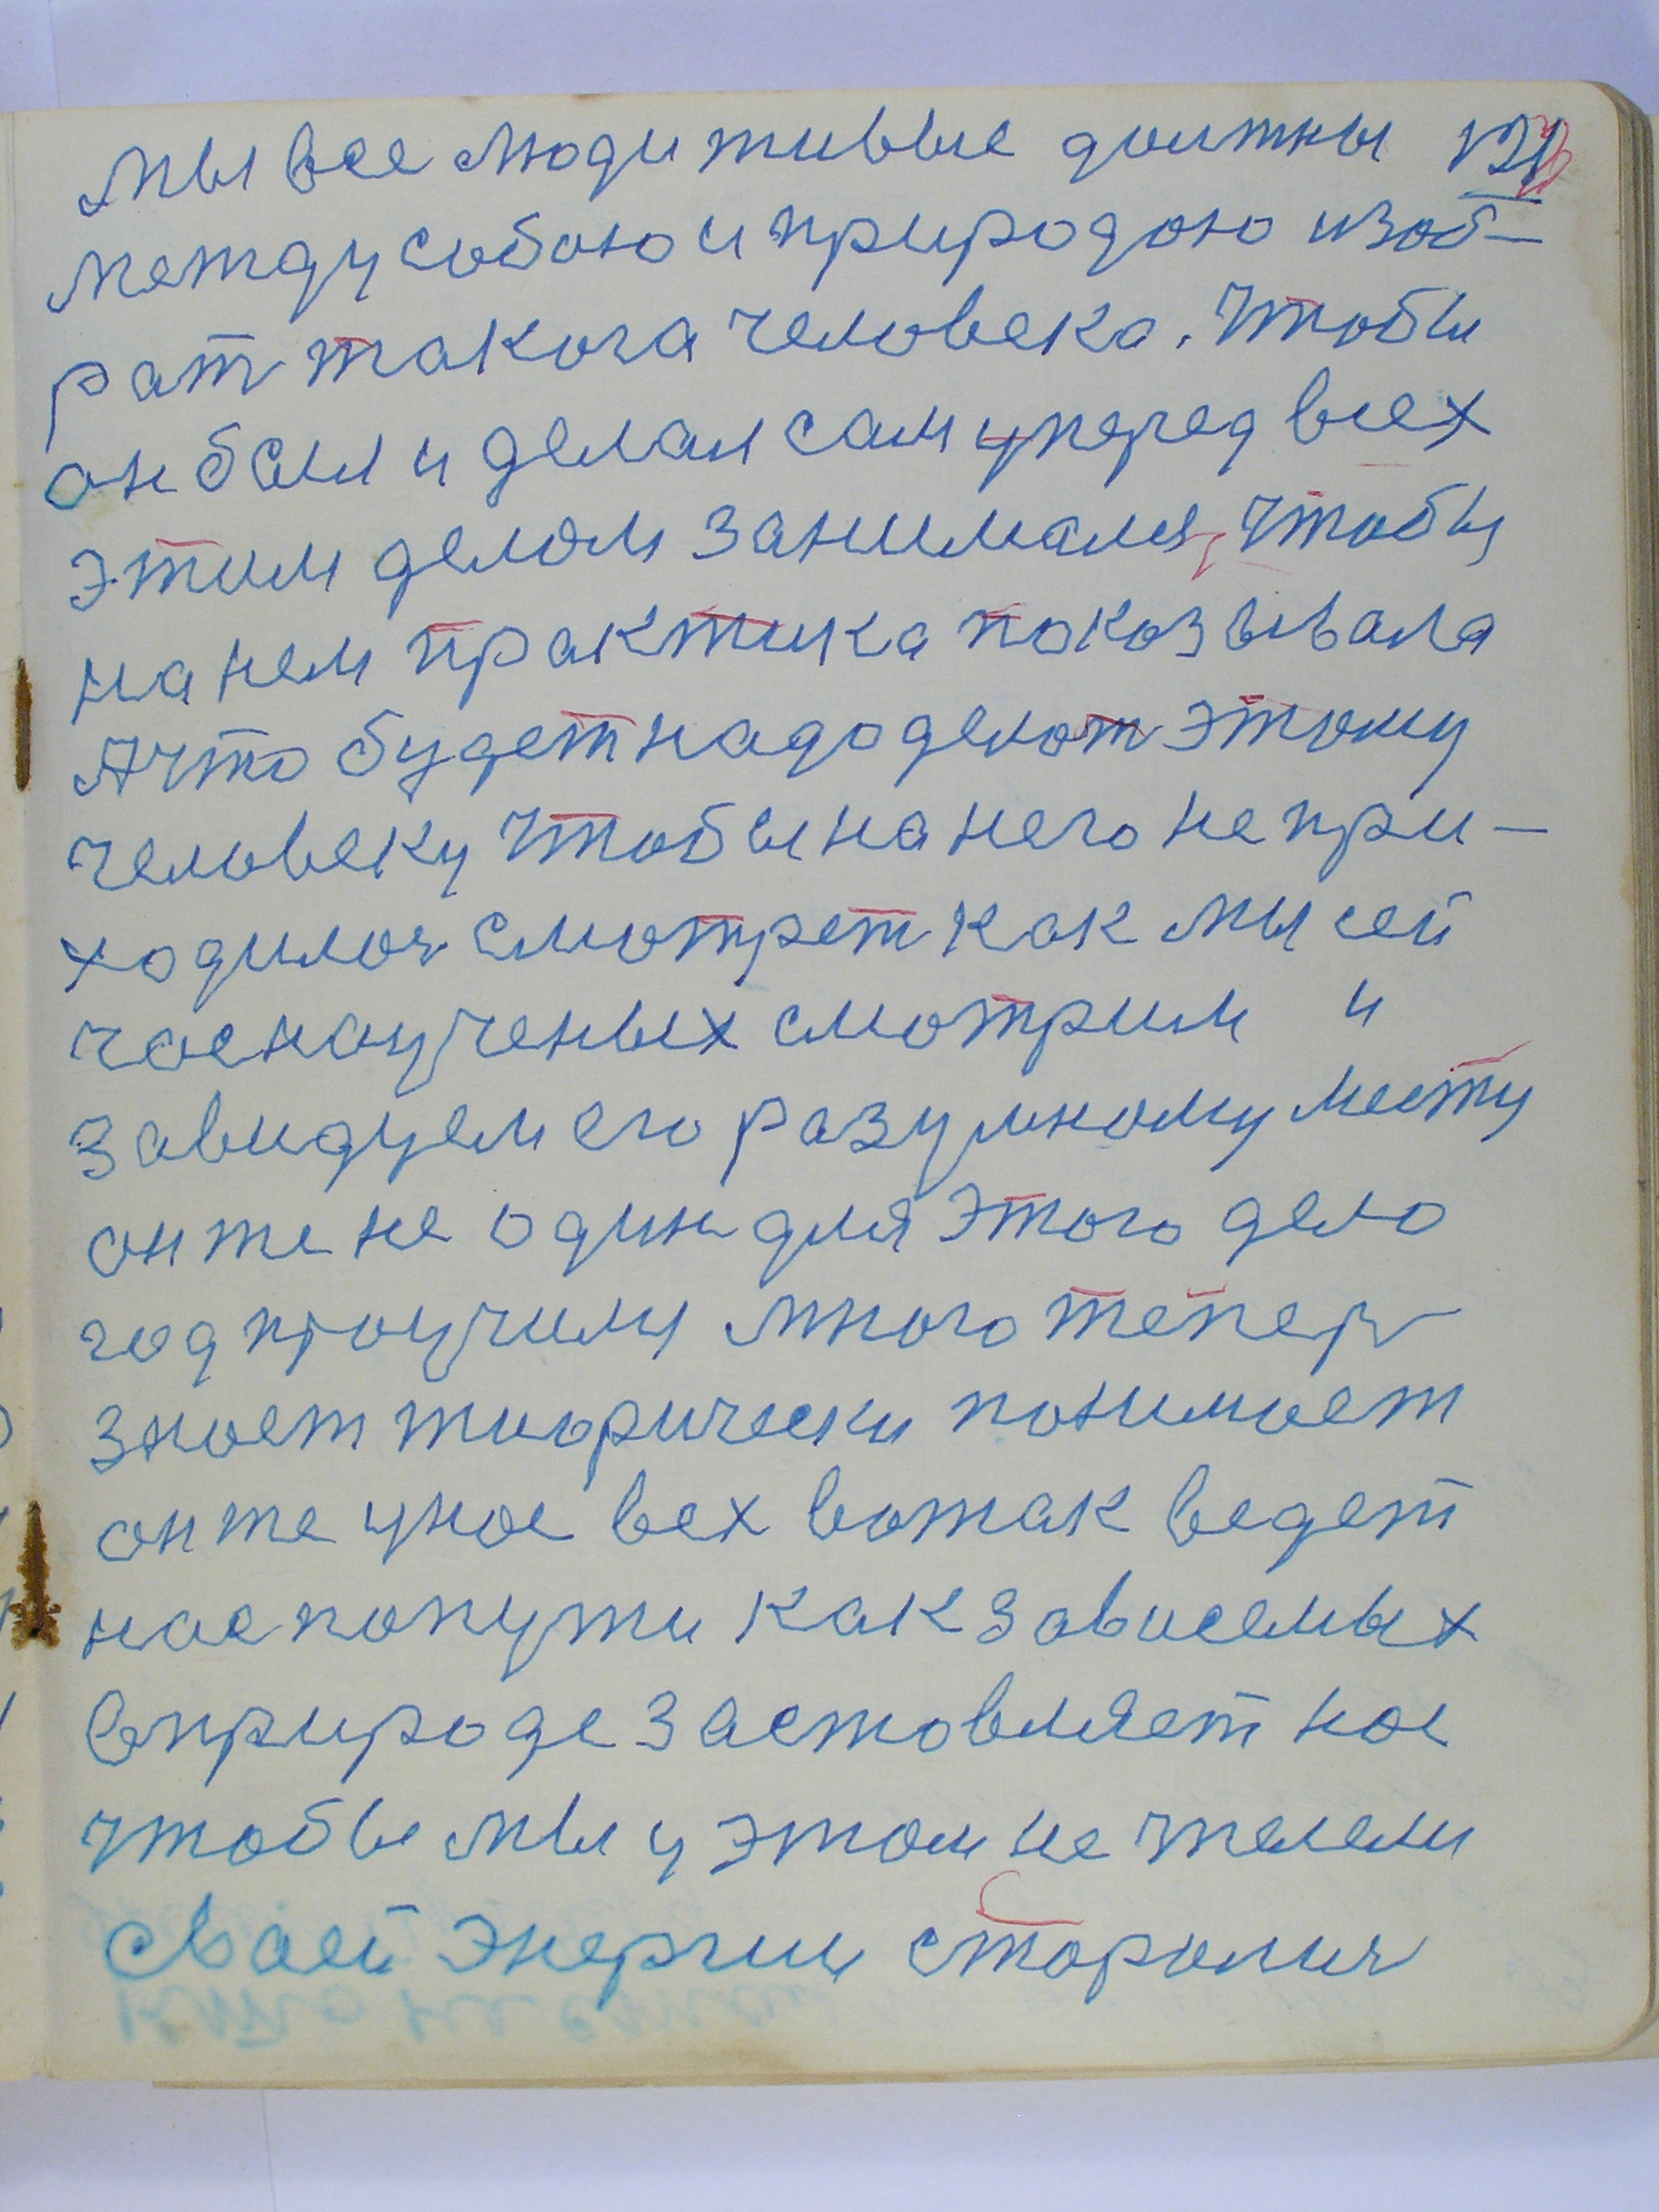 мы все люди живые должны
между собою и природою изоб-
рат такога человека. Чтобы
он был и делал сам уперед всех
этим делом занимался, чтобы
на нем практика показывала
А что будет надо делат этому
человеку чтобы на него не при-
ходилос смотрет как мы сей
час на ученых смотрим и
завидуем его разумному месту
он же не один для этого дело
год проучился много тепер
знает тиорически понимает
он же у нас всех вожак ведет
нас по пути как зависемых
в природе заставляет нас
чтобы мы у этом не жалели
своей энергии старалис